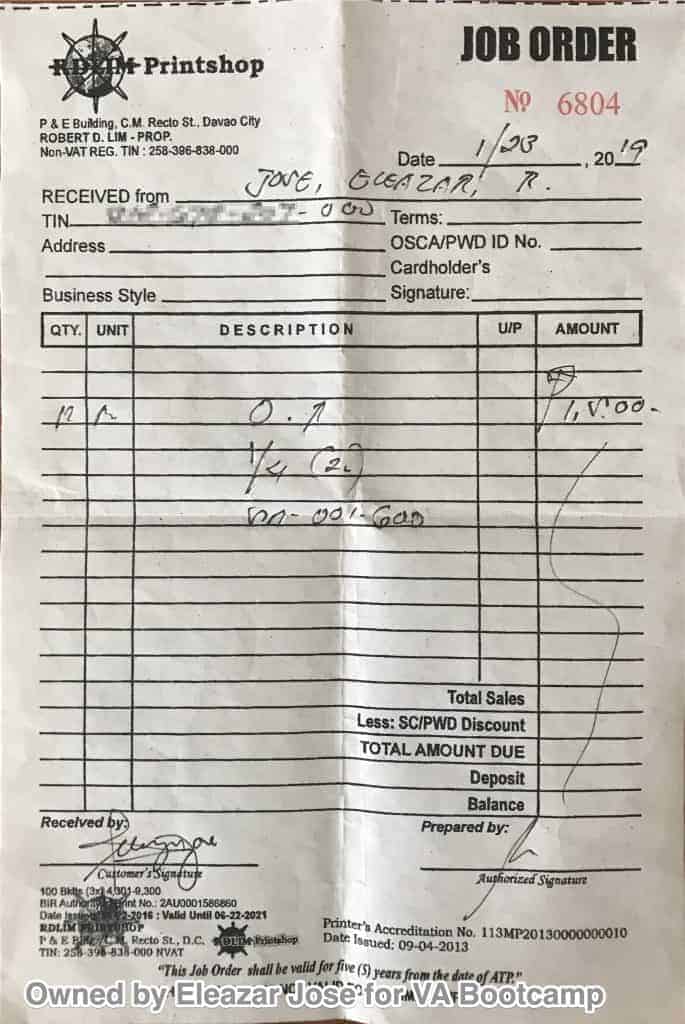 RDLIM Printshop
JOB ORDER
Nº 6804
P & E Building, C.M. Recto St., Davao City
ROBERT D. LIM - PROP.
Non-VAT REG. TIN : 258-396-838-000
Date 1/23, 2019
RECEIVED from JOSE, ELEAZAR, R.
TIN - 000 Terms:
Address OSCA/PWD ID No.
Cardholder's
Business Style Signature:
QTY. UNIT DESCRIPTION U/P AMOUNT
1/4 (2)
001-600
Total Sales
Less: SC/PWD Discount
TOTAL AMOUNT DUE
Deposit
Balance
Received by: Prepared by:
Customer's Signature Authorized Signature
100 Bklts (3x) 4,301-9,300
BIR Authority Print No.: 2AU0001586860
Date Issued 2-2016 : Valid Until 06-22-2021
RDLIM PRINTSHOP
P & E Bldg., C.M. Recto St., D.C.
TIN: 258-396-838-000 NVAT
RDLIM Printshop
Printer's Accreditation No. 113MP20130000000010
Date Issued: 09-04-2013
"This Job Order shall be valid for five (5) years from the date of ATP."
Owned by Eleazar Jose for VA Bootcamp